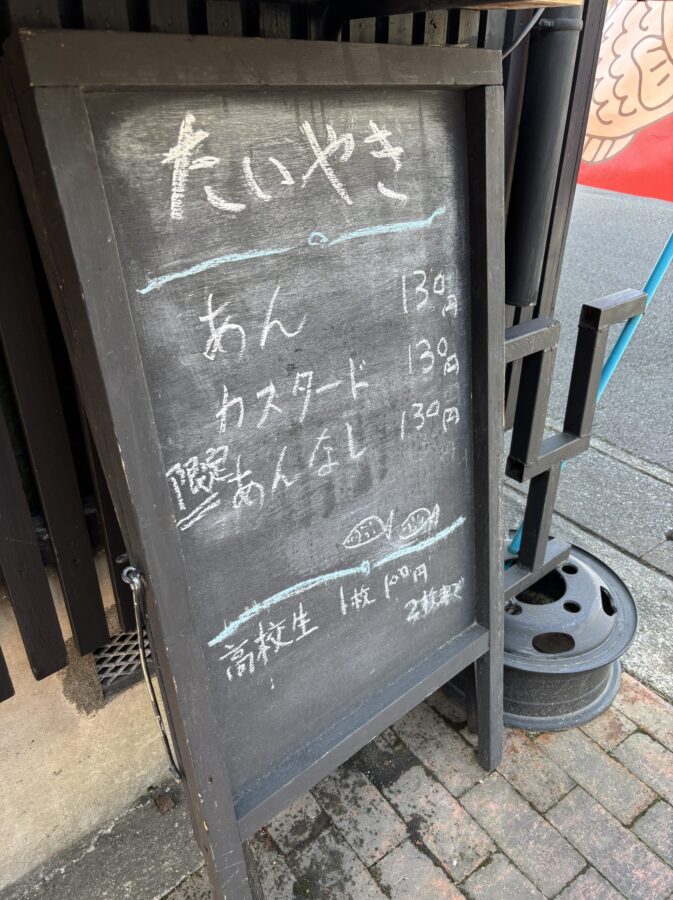 たいやき
あん 130円
カスタード 130円
限定 あんなし 130円
高校生 1枚 100円
2枚まで